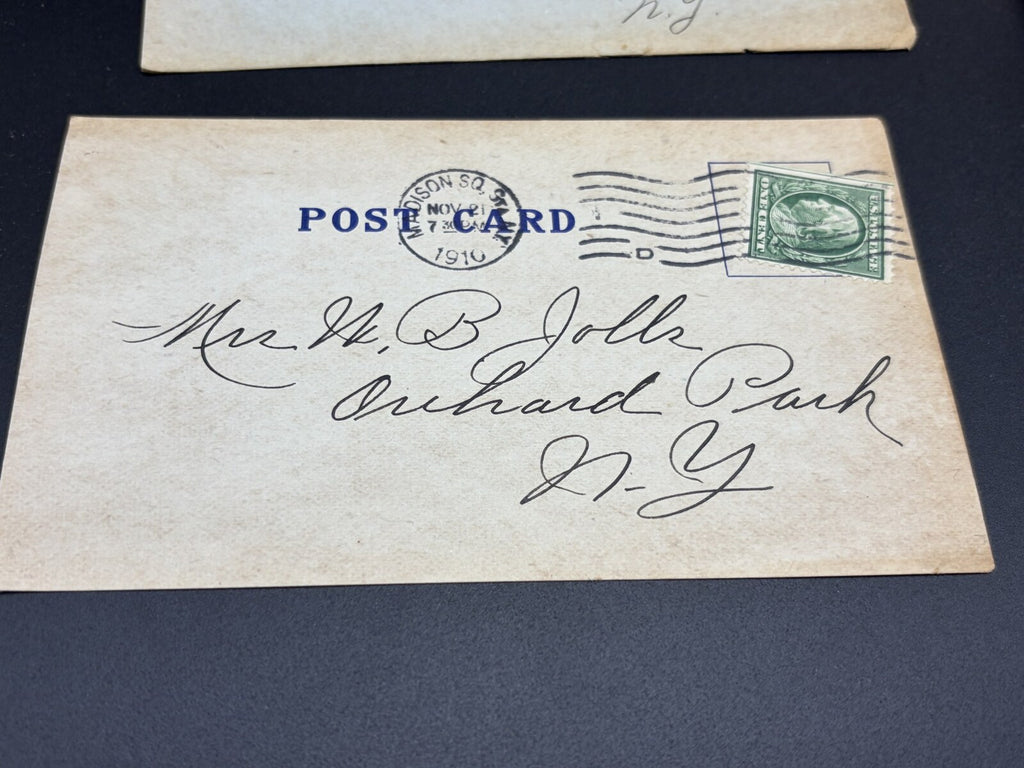 N.Y.
POST CARD
MADISON SQ. STA. N.Y.
NOV 21
7 30 PM
1910
D
ONE CENT
U.S. POSTAGE
Mrs W. B Jolls
Orchard Park
N-Y